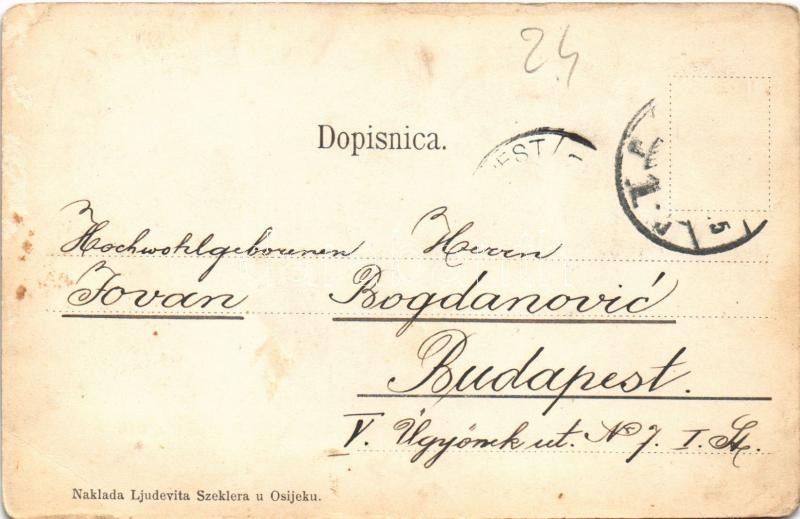 24
Dopisnica.
EST
5
Hochwohlgeborenen Herrn
Jovan Bogdanović
Budapest.
V. Ügyönek ut. No 7. I. St.
Naklada Ljudevita Szeklera u Osijeku.